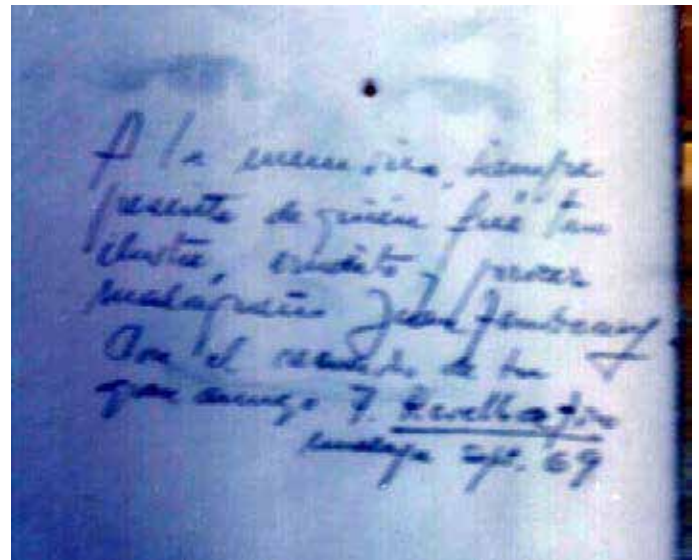 A la memoria, siempre
presente de quién fué tan
ilustre, erudito y procer
malagueño Juan Temboury.
Con el recuerdo de su
gran amigo F. Revello de Toro
malaga sept. 69